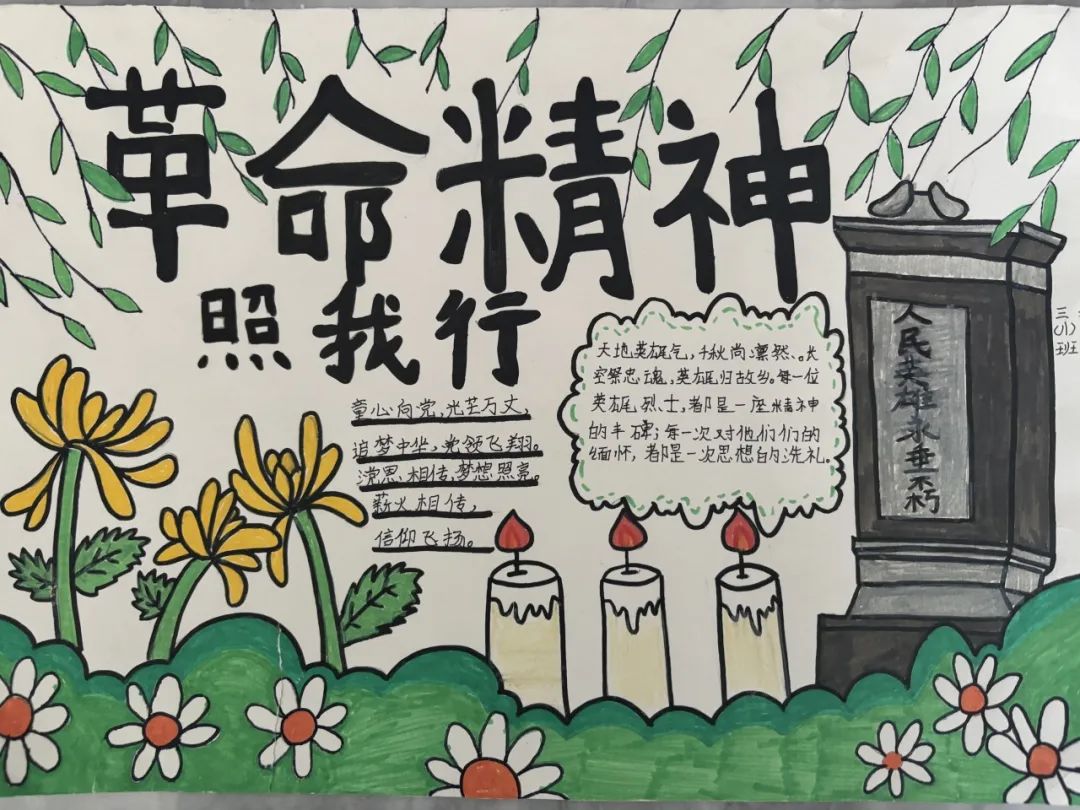 革命精神
照我行
童心向党,光芒万丈,
追梦中华,党领飞翔。
党思相传,梦想照亮。
薪火相传,
信仰飞扬。
天地英雄气,千秋尚凛然、。长
空祭忠魂,英雄归故乡。每一位
英雄烈士,都是一座精神
的丰碑;每一次对他们们的
缅怀,都是一次思想的洗礼。
人民英雄永垂不朽
三
(八)
班